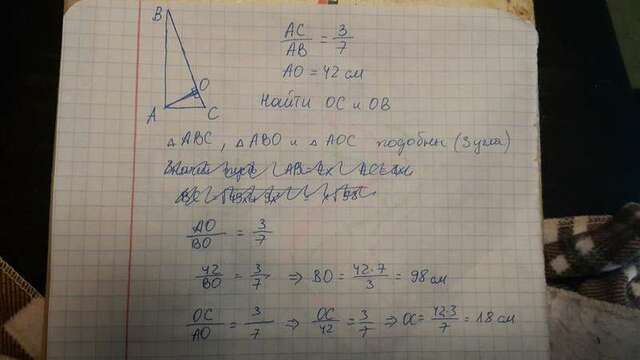 B
AC/AB = 3/7
AO = 42 см
O
Найти OC и OB
A
C
△ABC, △ABO и △AOC подобны (3 угла)
AO/BO = 3/7
42/BO = 3/7 ⇒ BO = 42·7/3 = 98 см
OC/AO = 3/7 ⇒ OC/42 = 3/7 ⇒ OC = 42·3/7 = 18 см